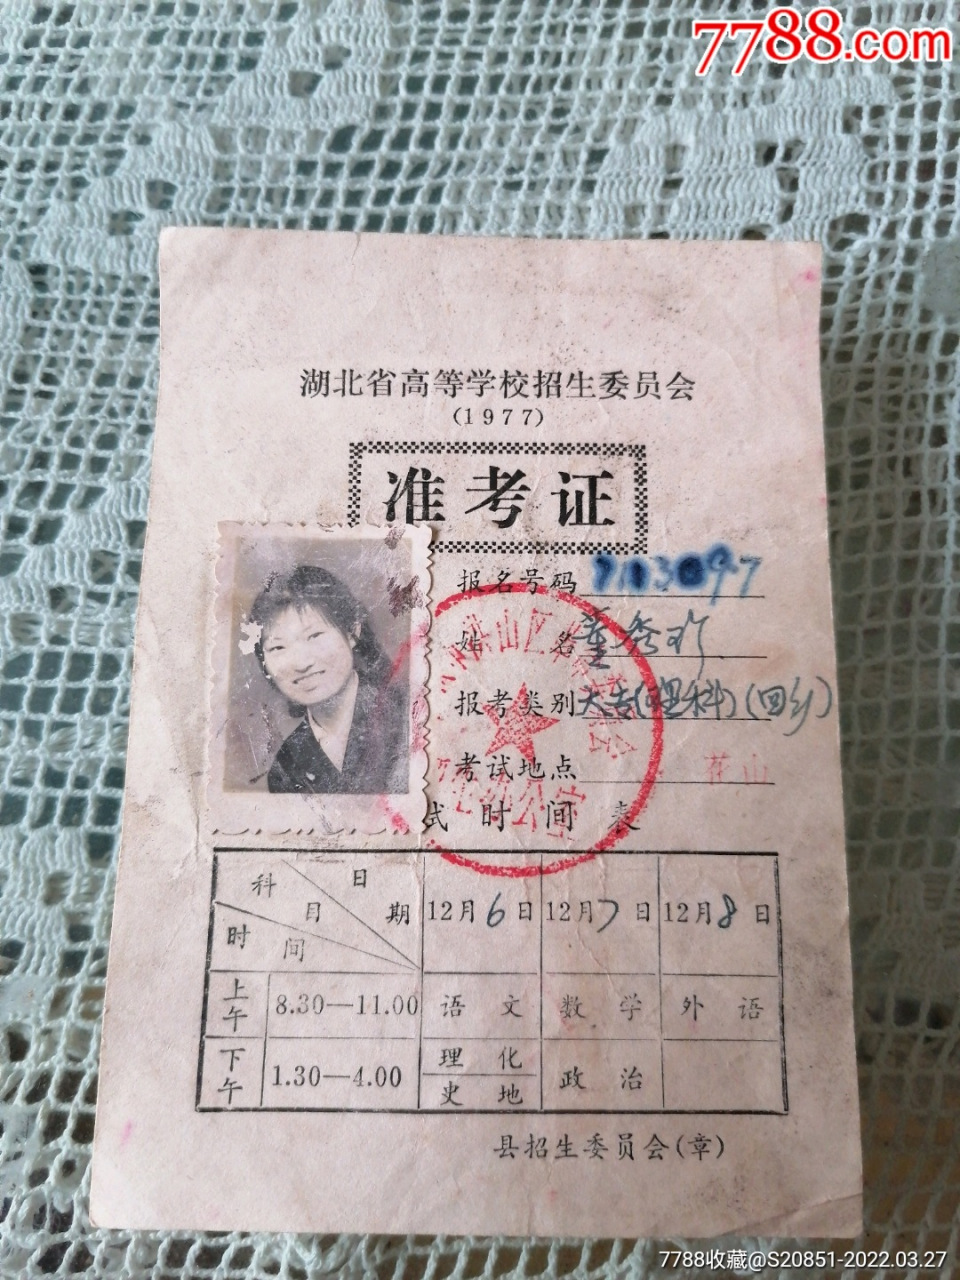 7788.com
湖北省高等学校招生委员会
(1977)
准考证
报名号码 7103097
姓名 童
报考类别 大专(理科)(回乡)
考试地点 花山
试时间表
科目 日期 时间 12月6日 12月7日 12月8日
上午 8.30—11.00 语文 数学 外语
下午 1.30—4.00 理化 史地 政治
县招生委员会(章)
7788收藏@S20851-2022.03.27